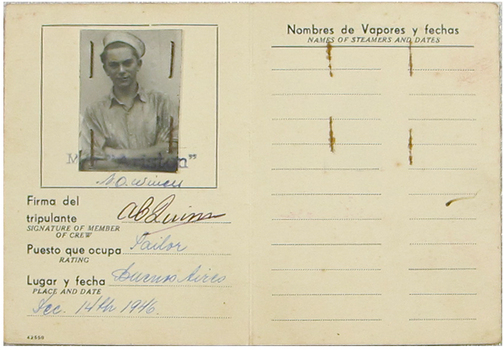 Firma del
tripulante
SIGNATURE OF MEMBER
OF CREW
Puesto que ocupa Sailor
RATING
Lugar y fecha Buenos Aires
PLACE AND DATE
Dec. 14th 1946.
42550
Nombres de Vapores y fechas
NAMES OF STEAMERS AND DATES